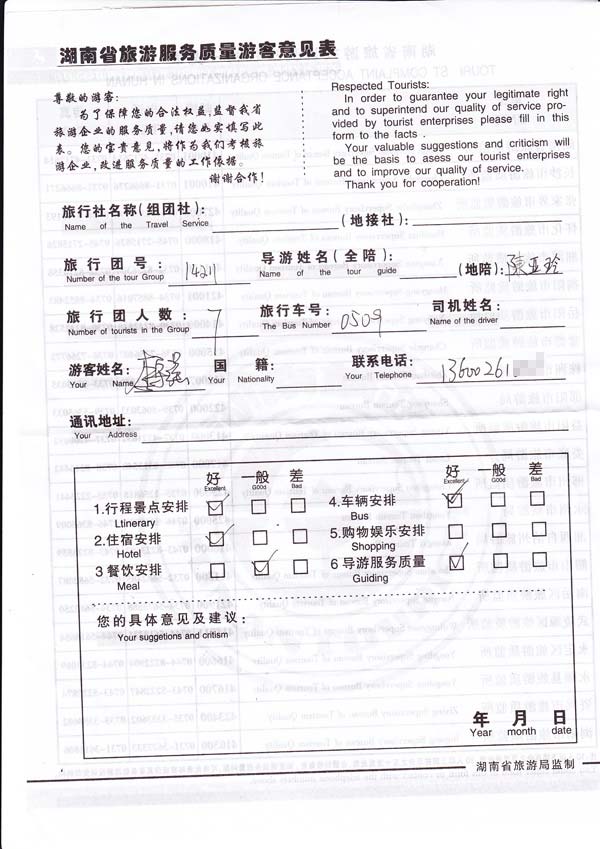 湖南省旅游服务质量游客意见表
尊敬的游客:
为了保障您的合法权益,监督我省
旅游企业的服务质量,请您如实填写此
表。您的宝贵意见,将作为我们考核旅
游企业,改进服务质量的工作依据。
谢谢合作!
Respected Tourists:
In order to guarantee your legitimate right
and to superintend our quality of service pro-
vided by tourist enterprises please fill in this
form to the facts .
Your valuable suggestions and criticism will
be the basis to asess our tourist enterprises
and to improve our quality of service.
Thank you for cooperation!
旅行社名称(组团社): (地接社):
Name of the Travel Service
旅行团号: 14211 导游姓名(全陪): (地陪): 陈亚玲
Number of the tour Group Name of the tour guide
旅行团人数: 7 旅行车号: 0509 司机姓名:
Number of tourists in the Group The Bus Number Name of the driver
游客姓名: 国籍: 联系电话: 13600261
Your Name Your Nationality Your Telephone
通讯地址:
Your Address
好 一般 差 好 一般 差
Excellent Good Bad Excellent Good Bad
1.行程景点安排 4.车辆安排
Ltinerary Bus
2.住宿安排 5.购物娱乐安排
Hotel Shopping
3 餐饮安排 6 导游服务质量
Meal Guiding
您的具体意见及建议:
Your suggetions and critism
年 月 日
Year month date
湖南省旅游局监制